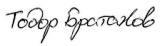 Тодор Братанов